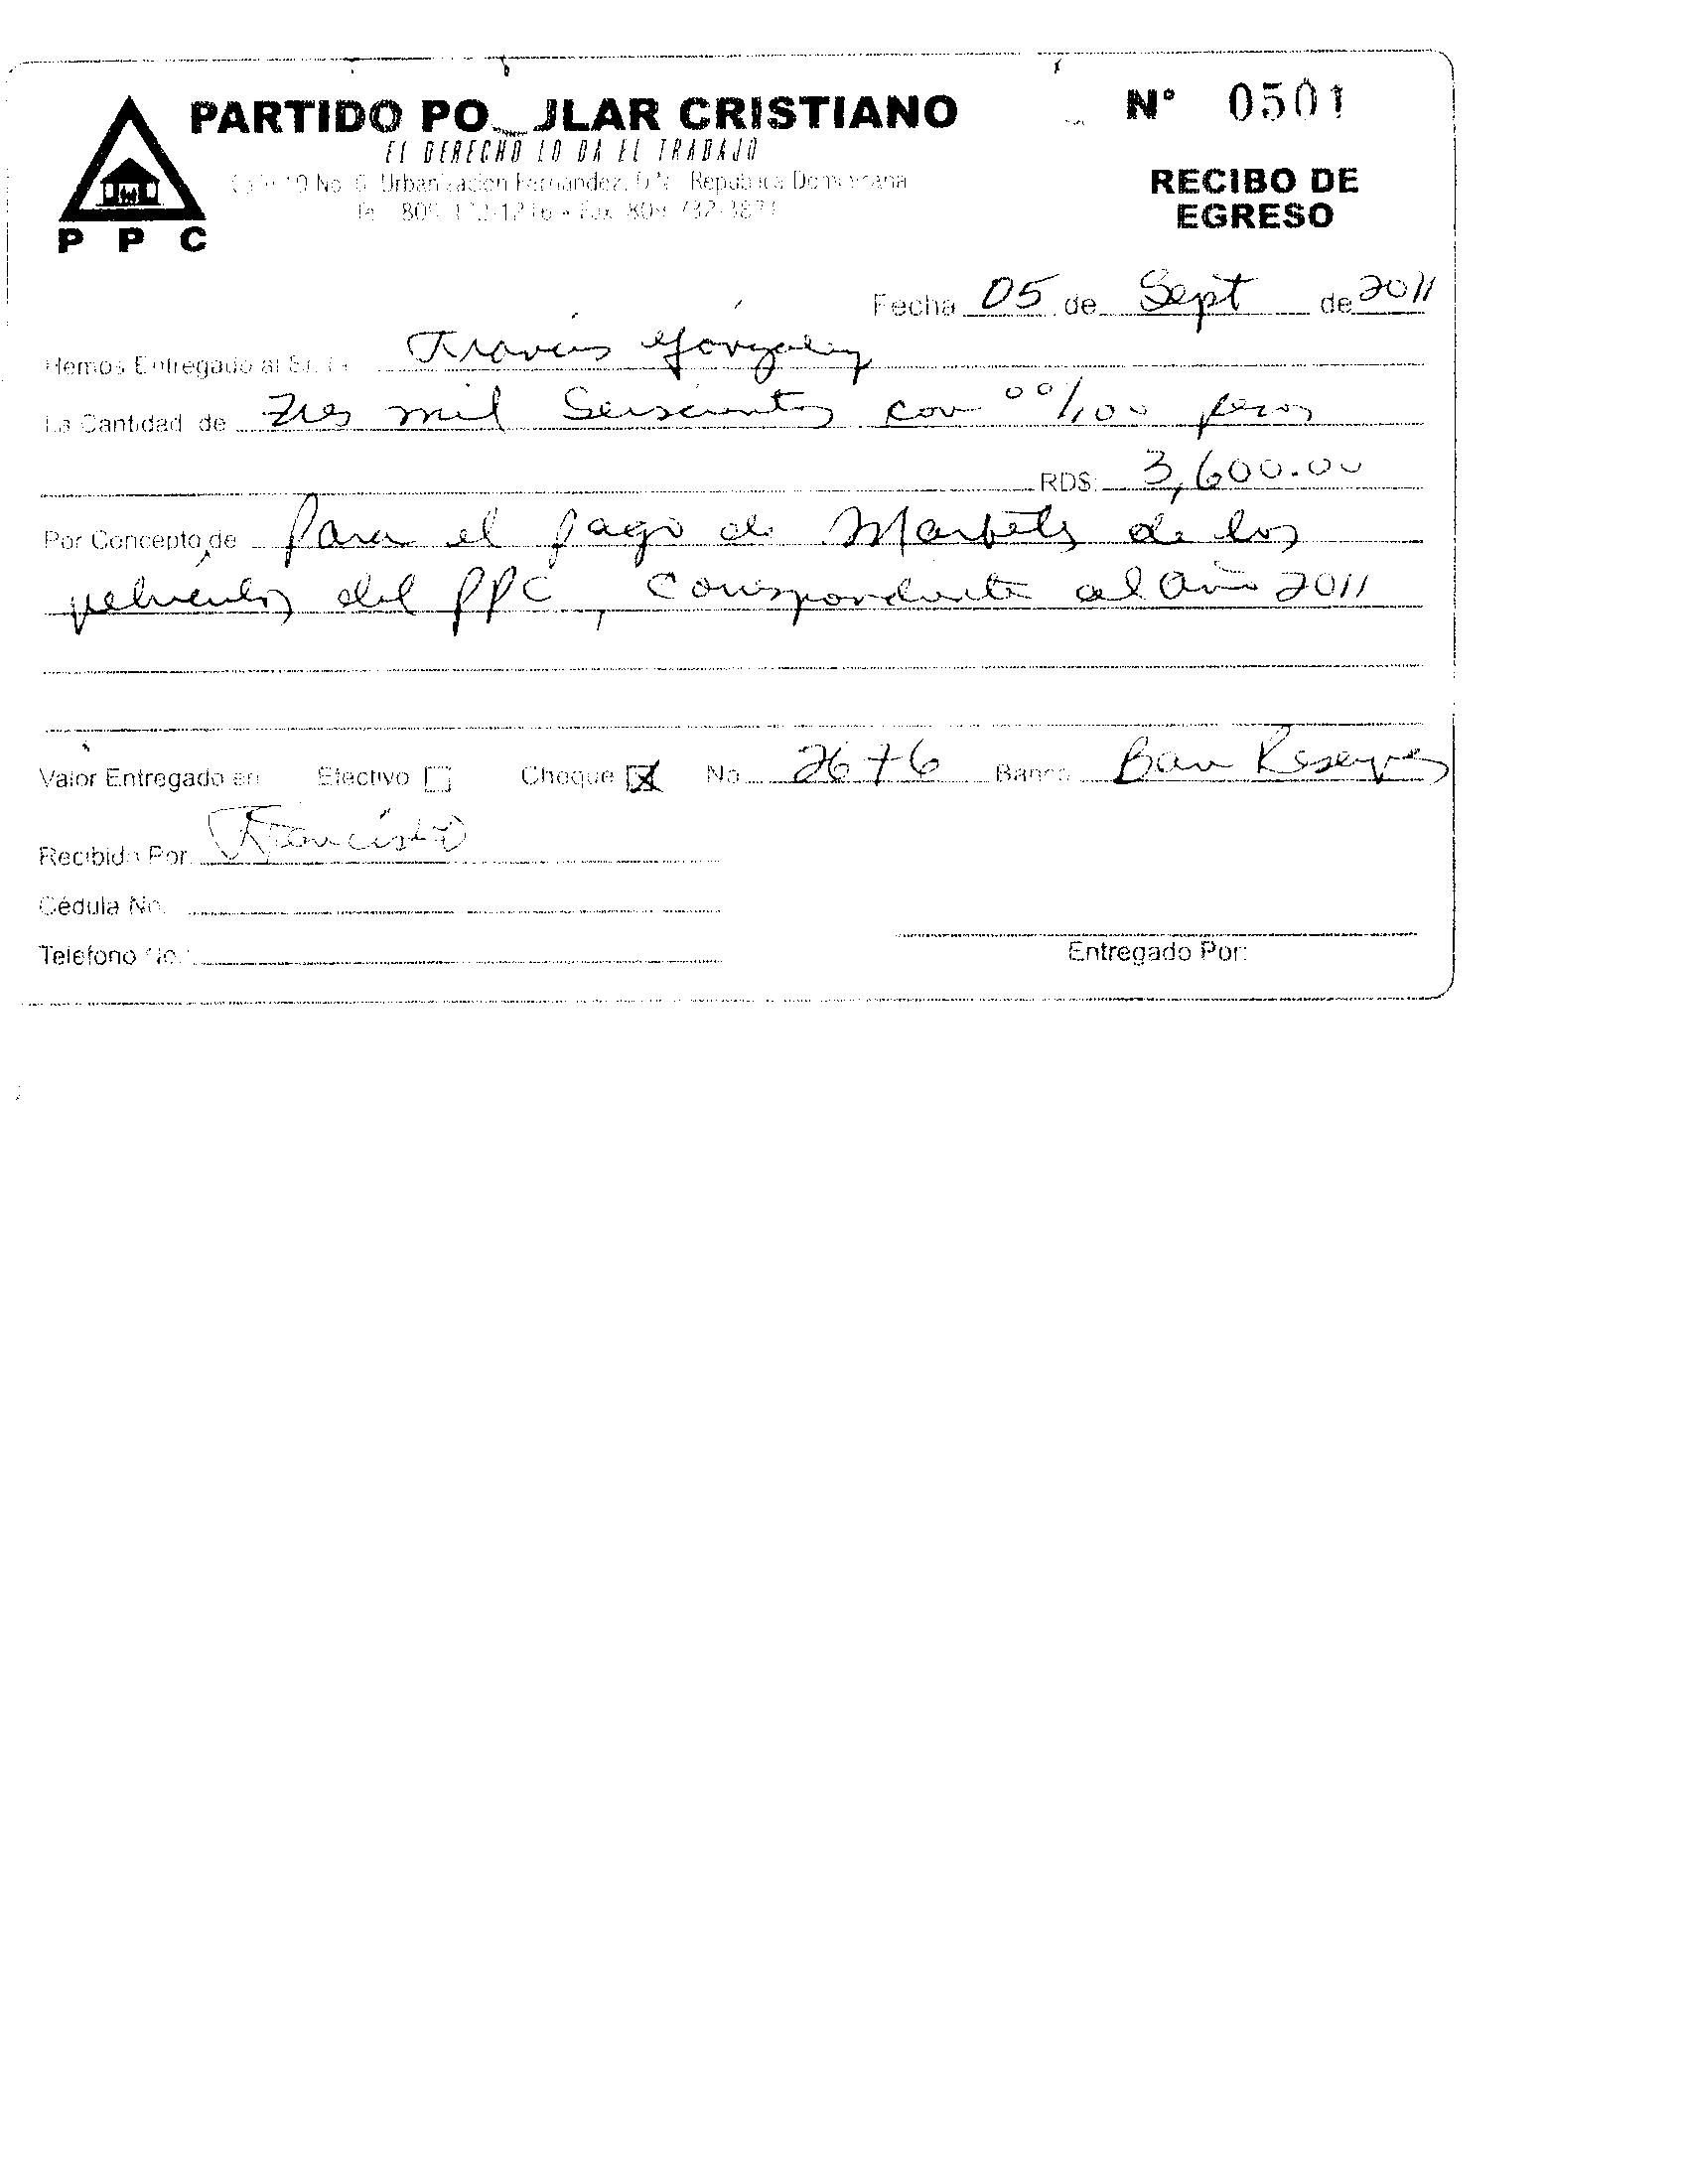 PARTIDO POPULAR CRISTIANO
N° 0501
EL DERECHO LO DA EL TRABAJO
No. 6 Urbanización Fernández, D.N. República Dominicana
RECIBO DE
EGRESO
P P C
Fecha 05 de Sept de 2011
Hemos Entregado al Sr.
La Cantidad de Tres mil Seiscientos con 00/100 pesos
RD$: 3,600.00
Por Concepto de Para el pago de Marbetes de los
vehiculos del PPC, Correspondiente al año 2011
Valor Entregado en Efectivo Cheque X No. 2676 Banco Ban Reservas
Recibido Por. Francisco
Cédula No.
Telefono No.:
Entregado Por: